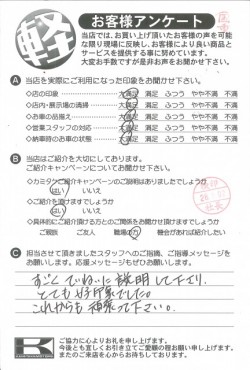 軽
お客様アンケート
当店では、お買い上げ頂いたお客様の声を可能
な限り現場に反映し、お客様により良い商品と
サービスを提供する事に努めています。
大変お手数ですが是非お声をお聞かせ下さい。
A 当店を実際にご利用になった印象をお聞かせ下さい。
◇店の印象 大満足 満足 ふつう やや不満 不満
◇店内・展示場の清掃 大満足 満足 ふつう やや不満 不満
◇お車の品揃え 大満足 満足 ふつう やや不満 不満
◇営業スタッフの対応 大満足 満足 ふつう やや不満 不満
◇納車時のお車の状態 大満足 満足 ふつう やや不満 不満
B 当店はご紹介を大切にしております。
ご紹介キャンペーンについてお聞かせ下さい。
◇カミタケご紹介キャンペーンのご説明はありましたでしょうか
はい いいえ
◇ご紹介を頂けますでしょうか
はい いいえ
◇具体的にご紹介頂ける方とのご関係をお聞かせ頂けますでしょうか
ご親族 ご友人 職場の方 機会があれば紹介したい
C 担当させて頂きましたスタッフへのご指摘、ご指導メッセージを
お願いします。応援メッセージもぜひお願いします。
すごくていねいに説明して下さり、
とても好印象でした。
これからも頑張って下さい。
K
ご協力に心よりお礼を申し上げます。
今後とも宜しくお引き立てご愛顧の程お願い申し上げます。
またのご来店を心からお待ちしております。